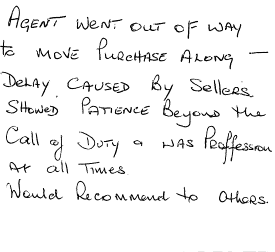 AGENT WENT OUT OF WAY
to MOVE PURCHASE ALONG —
DELAY CAUSED By SELLERS.
SHOWED PATIENCE Beyond the
Call of DUTY & WAS PROFFESSION
At all Times.
Would Recommend to OTHERS.